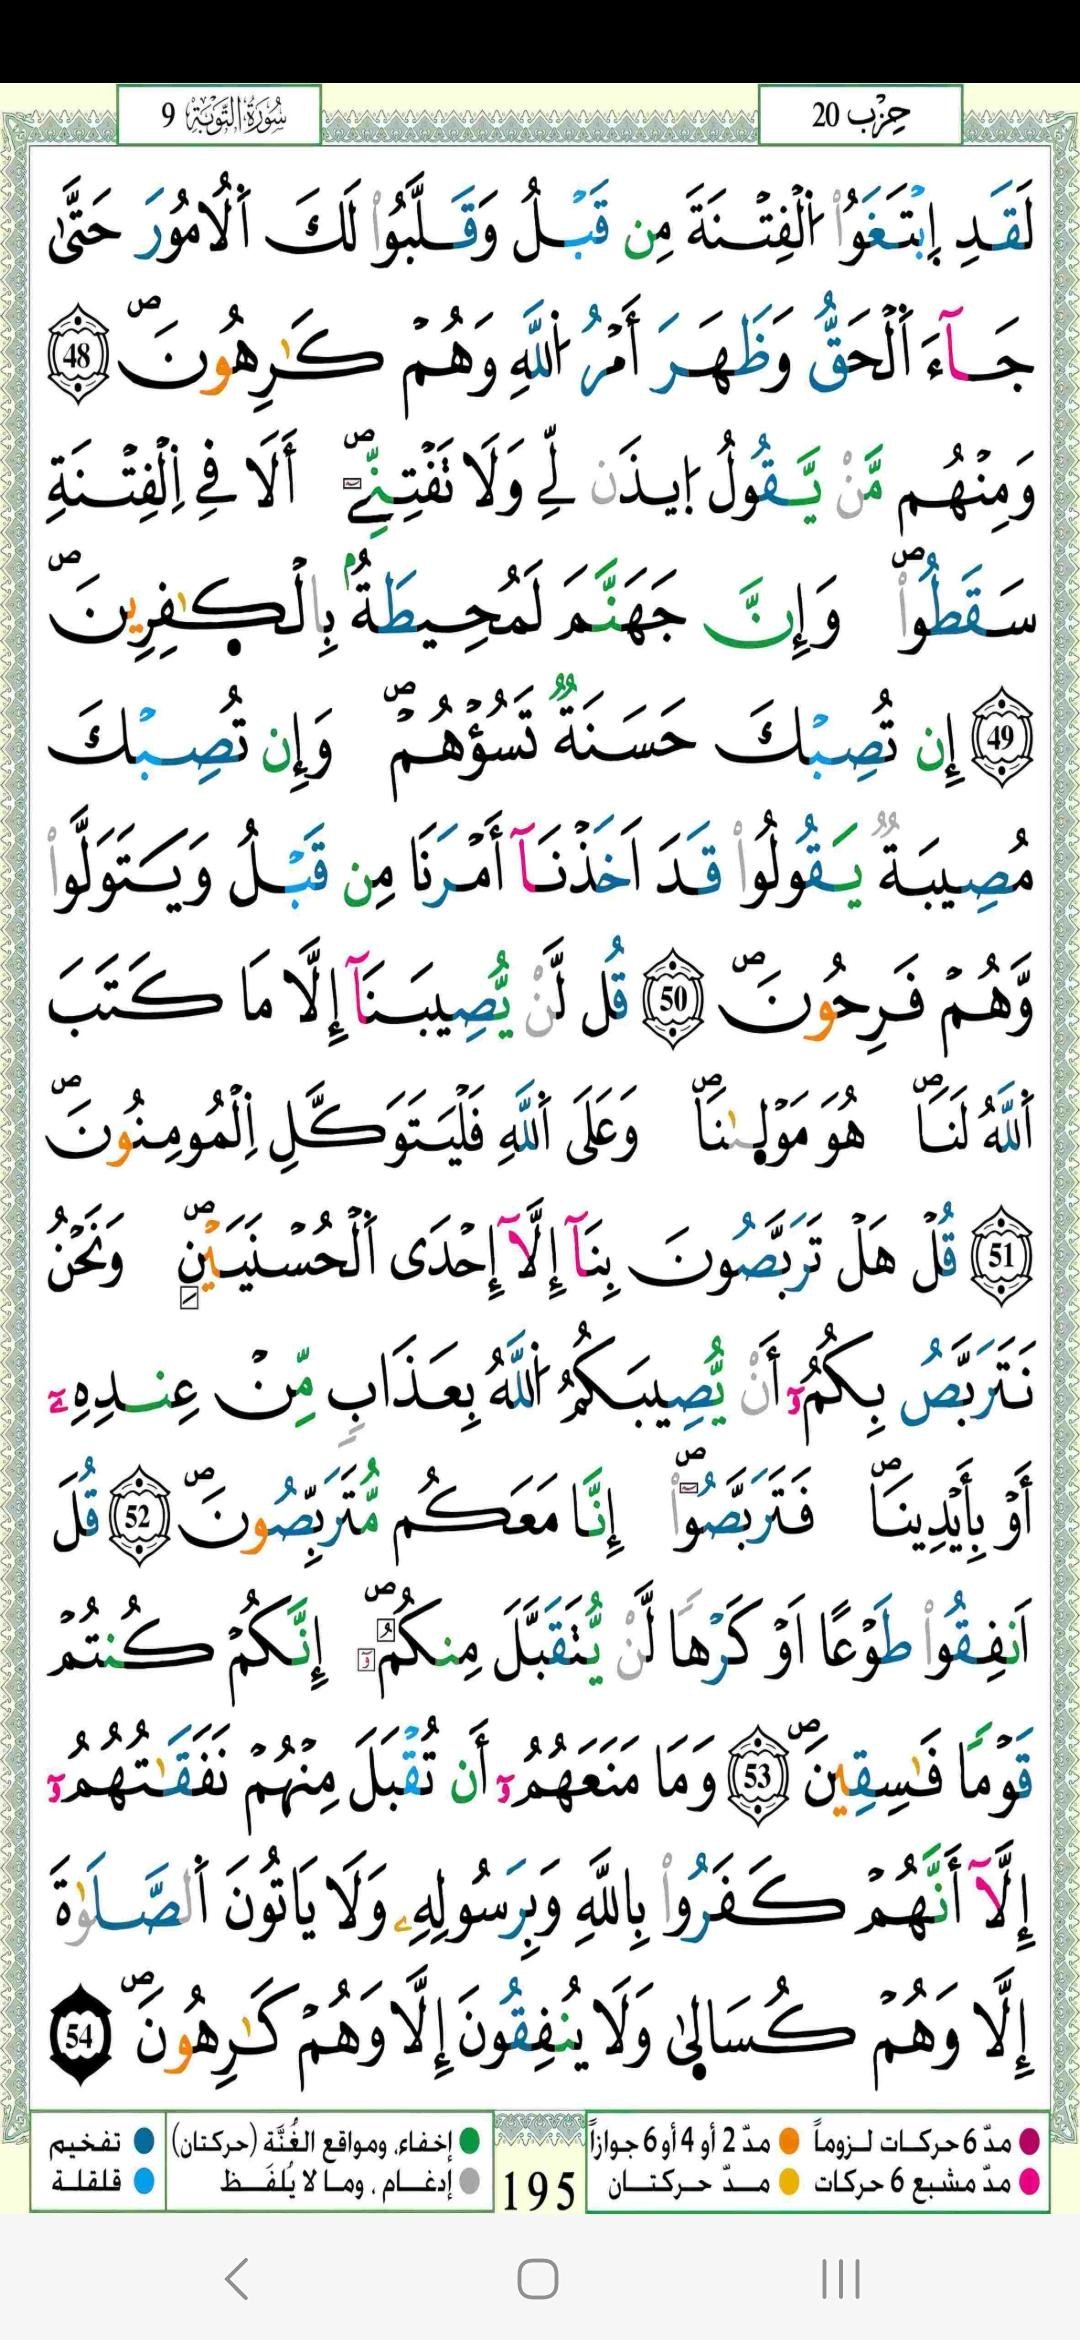 سُورَةُ التَّوْبَة 9
حِزْب 20
لَقَدِ اِبْتَغَوُاْ اُلْفِتْنَةَ مِن قَبْلُ وَقَلَّبُواْ لَكَ اَلُامُورَ حَتَّىٰ
جَآءَ اَلْحَقُّ وَظَهَرَ أَمْرُ اُللَّهِ وَهُمْ كَٰرِهُونَۖ 48
وَمِنْهُم مَّنْ يَّقُولُ اِيذَن لِّے وَلَا تَفْتِنِّےۖ أَلَا فِے اِلْفِتْنَةِ
سَقَطُواْۖ وَإِنَّ جَهَنَّمَ لَمُحِيطَةُۢ بِالْكٰ۪فِرِينَۖ
49 إِن تُصِبْكَ حَسَنَةٞ تَسُؤْهُمْۖ وَإِن تُصِبْكَ
مُصِيبَةٞ يَقُولُواْ قَدَ اَخَذْنَآ أَمْرَنَا مِن قَبْلُ وَيَتَوَلَّواْ
وَّهُمْ فَرِحُونَۖ 50 قُل لَّنْ يُّصِيبَنَآ إِلَّا مَا كَتَبَ
اَللَّهُ لَنَاۖ هُوَ مَوْل۪ىٰنَاۖ وَعَلَى اَللَّهِ فَلْيَتَوَكَّلِ اِلْمُومِنُونَۖ
51 قُلْ هَلْ تَرَبَّصُونَ بِنَآ إِلَّآ إِحْدَى اَلْحُسْنَيَيْنِۖ وَنَحْنُ
نَتَرَبَّصُ بِكُمُۥٓ أَنْ يُّصِيبَكُمُ اُللَّهُ بِعَذَابٖ مِّنْ عِندِهِۦٓ
أَوْ بِأَيْدِينَاۖ فَتَرَبَّصُوٓاْۖ إِنَّا مَعَكُم مُّتَرَبِّصُونَۖ 52 قُلَ
اَنفِقُواْ طَوْعًا اَوْ كَرْهاٗ لَّنْ يُّتَقَبَّلَ مِنكُمُۥٓۖ إِنَّكُمْ كُنتُمْ
قَوْماٗ فَٰسِقِينَۖ 53 وَمَا مَنَعَهُمُۥٓ أَن تُقْبَلَ مِنْهُمْ نَفَقَٰتُهُمُۥٓ
إِلَّآ أَنَّهُمْ كَفَرُواْ بِاللَّهِ وَبِرَسُولِهِۦ وَلَا يَاتُونَ اَلصَّلَوٰةَ
إِلَّا وَهُمْ كُسَال۪ىٰ وَلَا يُنفِقُونَ إِلَّا وَهُمْ كَٰرِهُونَۖ 54
مدّ 6 حركات لـزوماً مدّ 2 أو 4 أو 6 جوازاً إخفاء، ومواقع الغُنَّة (حركتان) تفخيم
مدّ مشبع 6 حركات مـــدّ حـركتـــان 195 إدغــام ، ومـا لا يُلفَــظ قلقلـة